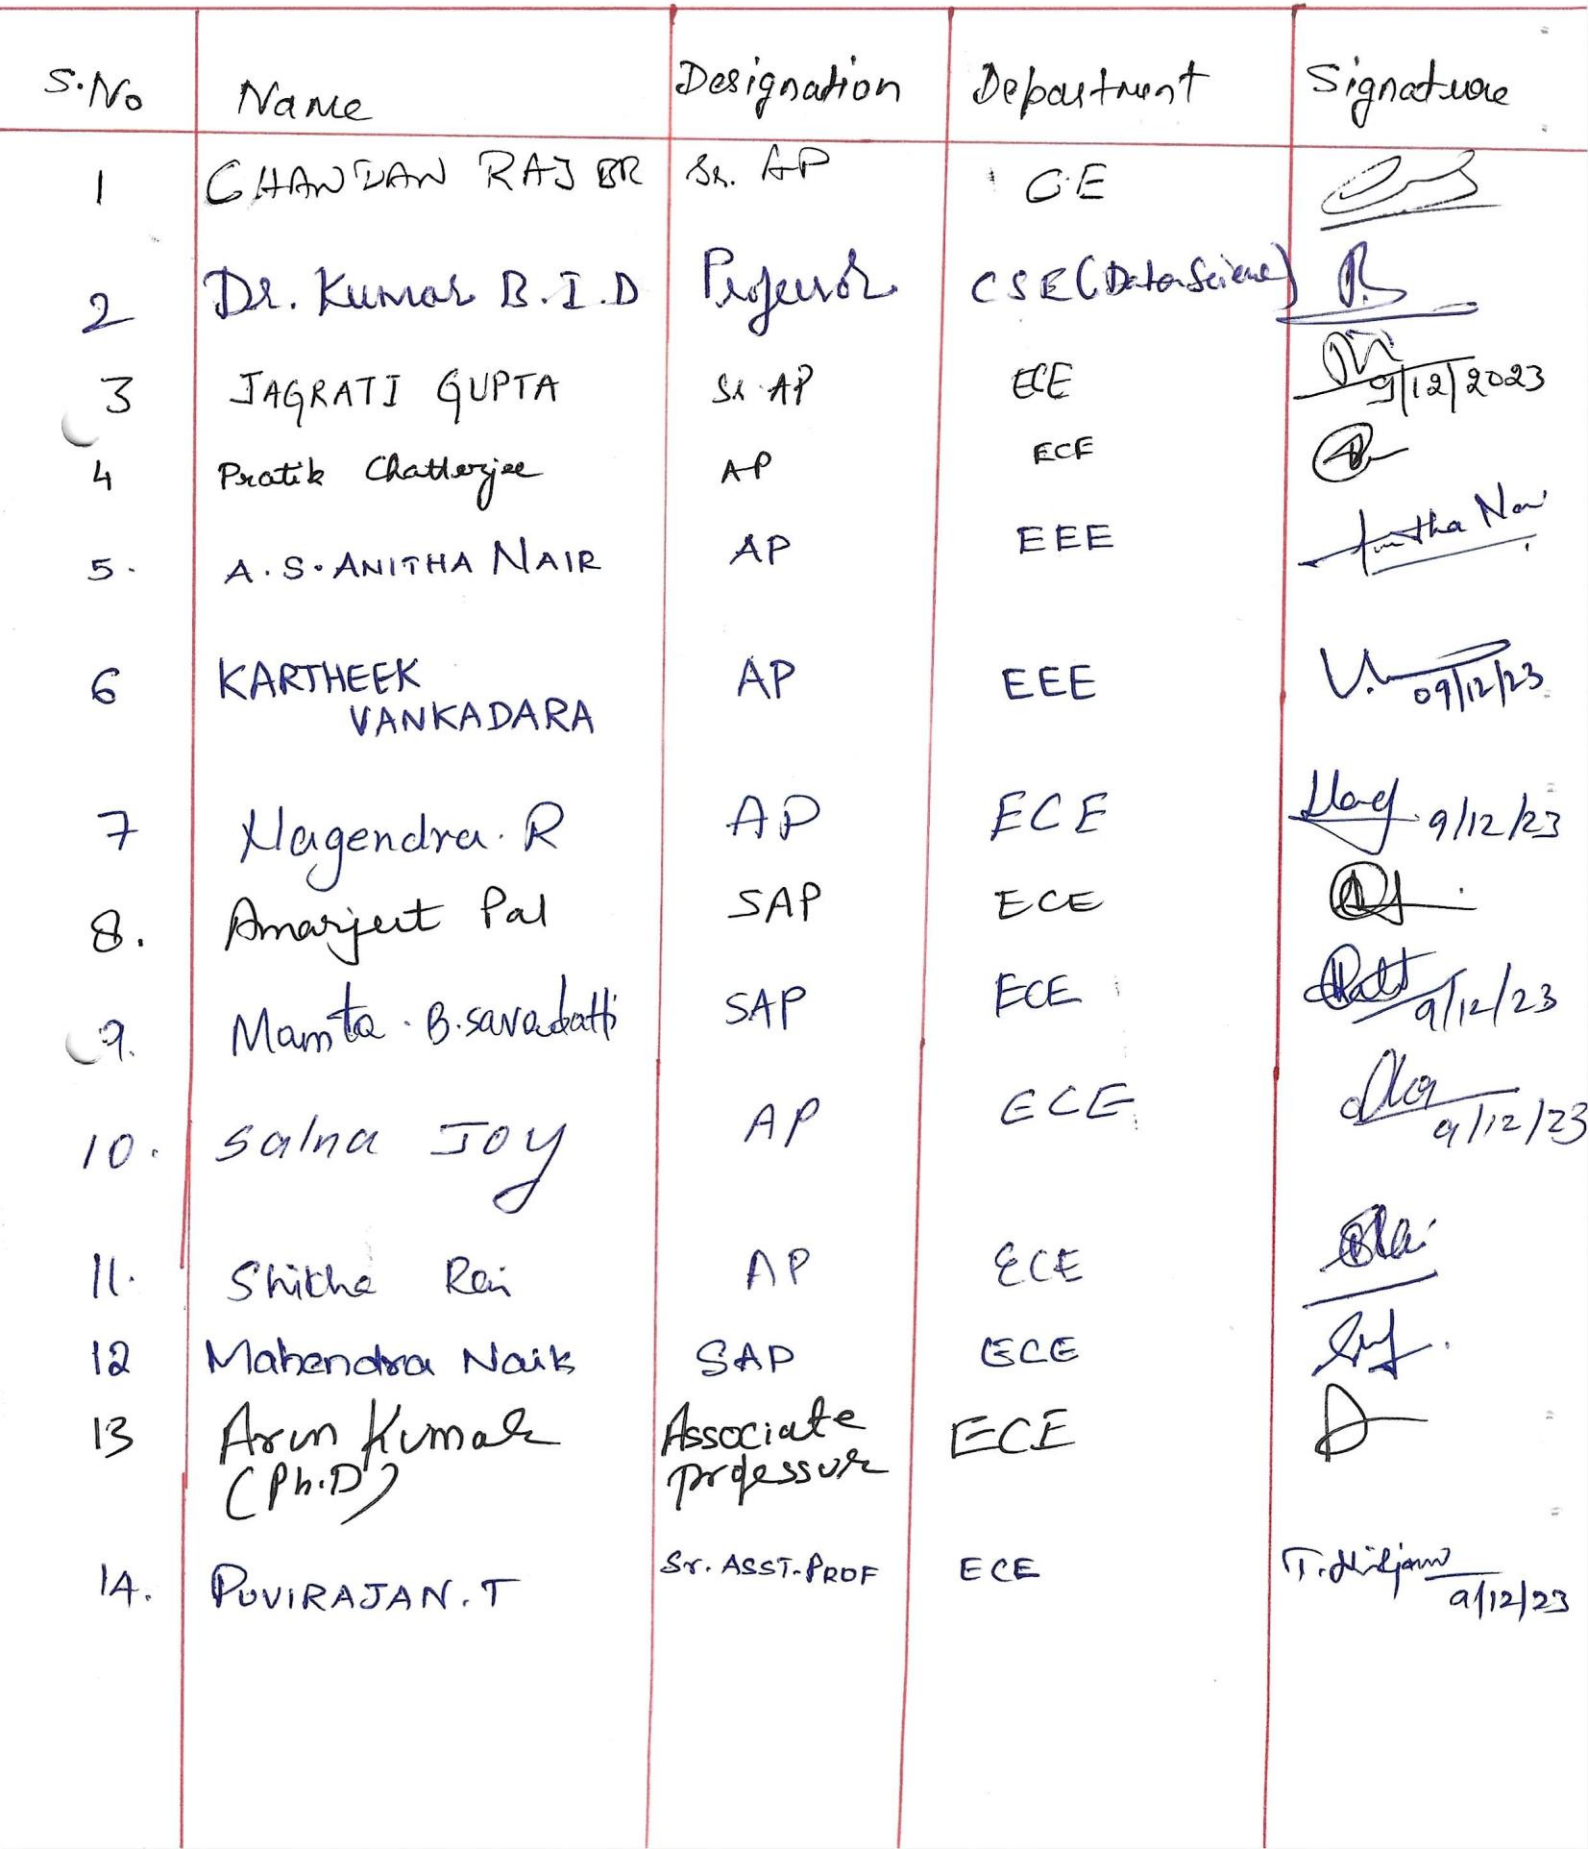 S.No Name Designation Department Signature
1 CHANDAN RAJ BR Sr. AP CE
2 Dr. Kumar B.I.D Professor CSE(Data Science)
3 JAGRATI GUPTA Sr AP ECE 9/12/2023
4 Pratik Chatterjee AP ECE
5. A.S. ANITHA NAIR AP EEE Anitha Nair
6 KARTHEEK AP EEE 09/12/23
VANKADARA
7 Nagendra. R AP ECE Nag 9/12/23
8. Amarjeet Pal SAP ECE
9. Mamta. B. savadatti SAP ECE 9/12/23
10. Salna Joy AP ECE 9/12/23
11. Shikha Rai AP ECE
12 Mahendra Naik SAP ECE
13 Arun Kumar Associate ECE
(Ph.D) professor
14. PUVIRAJAN. T Sr. ASST. PROF ECE 9/12/23